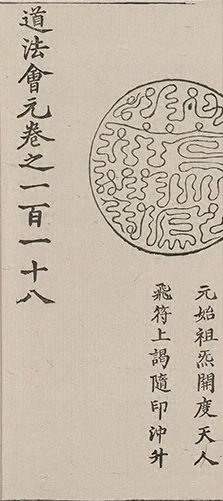 元始祖炁開度天人
飛符上謁隨印沖升
道法會元卷之一百一十八